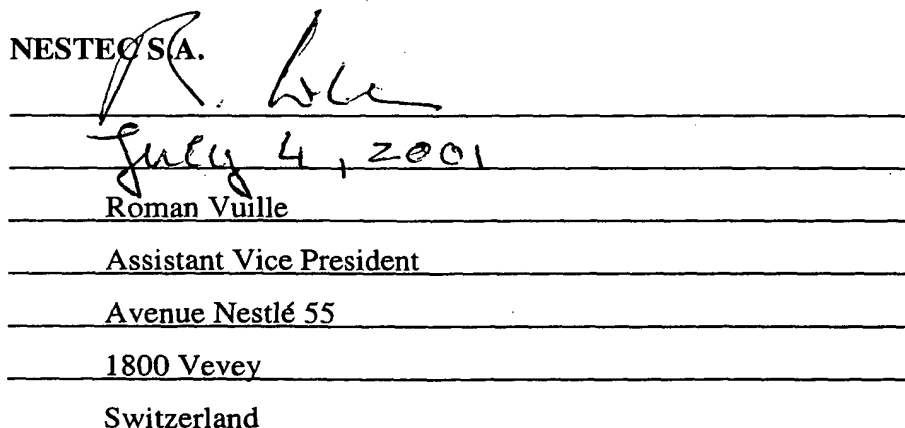 NESTEC S.A.
R.
July 4, 2001
Roman Vuille
Assistant Vice President
Avenue Nestlé 55
1800 Vevey
Switzerland